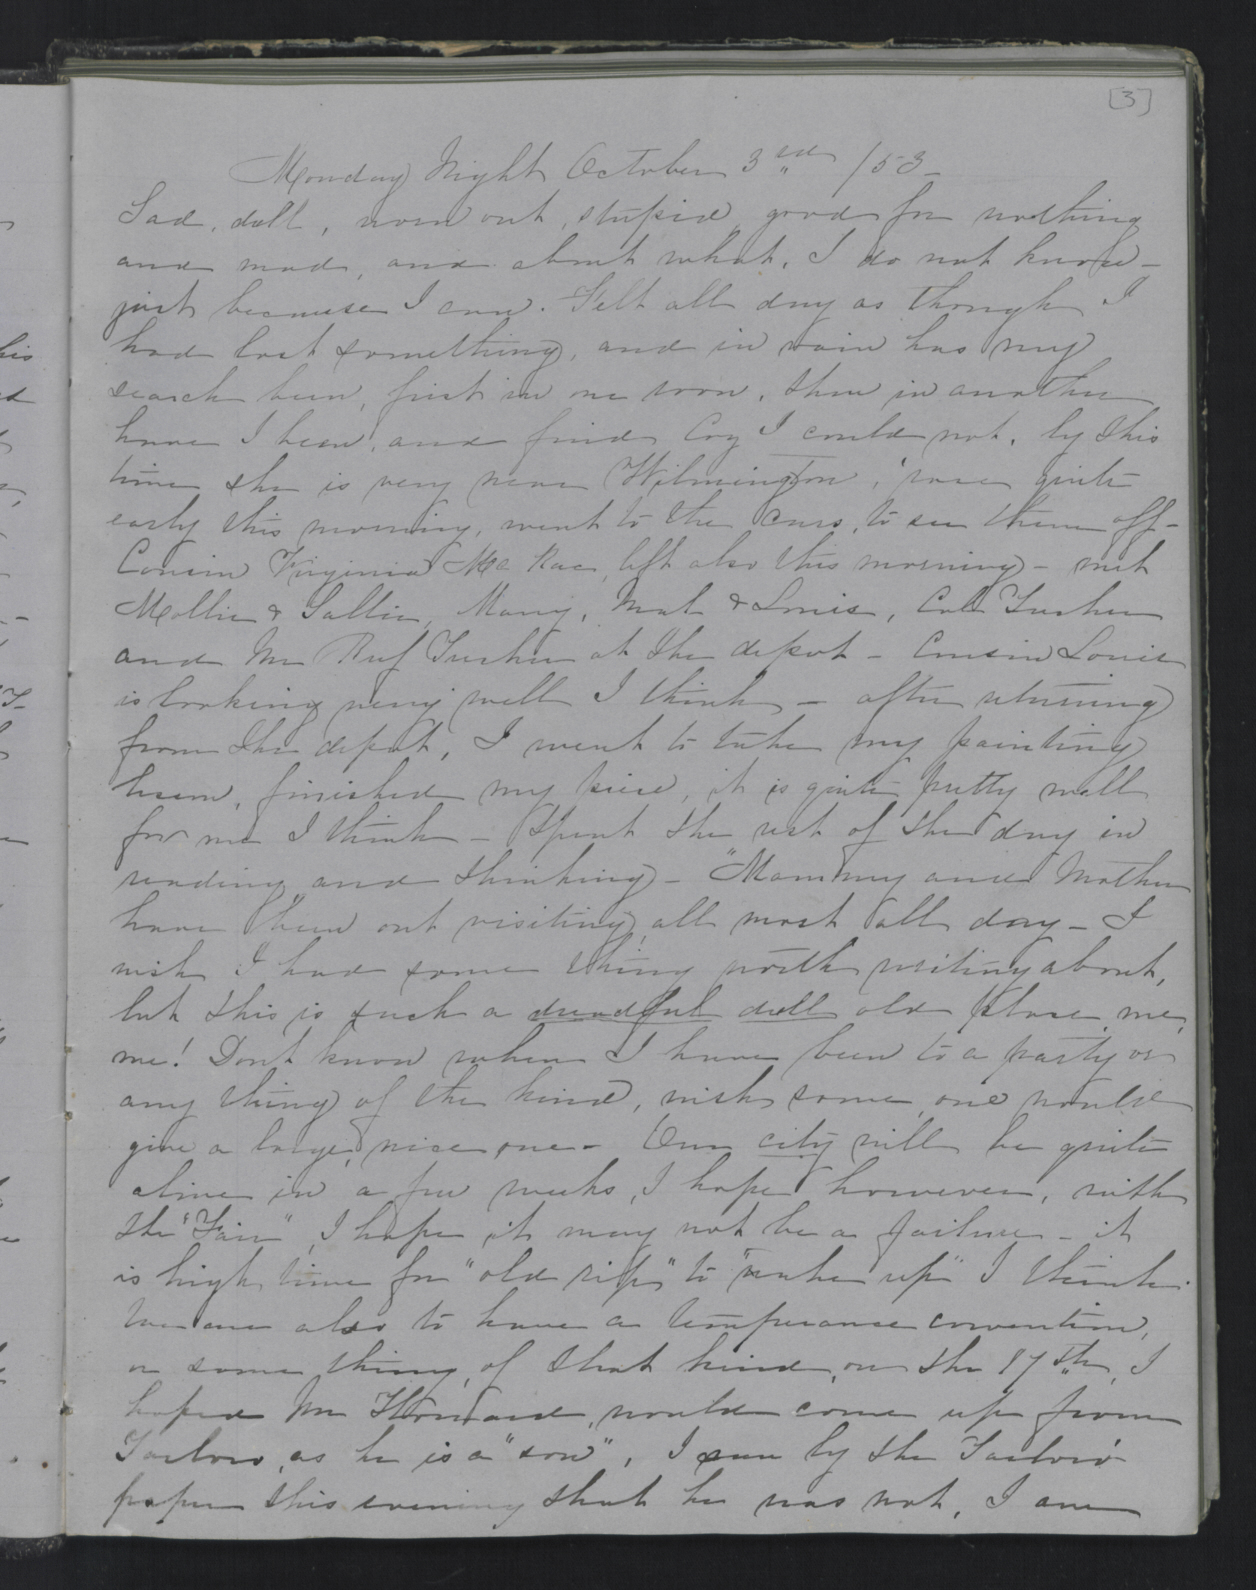 [3]
Monday Night October 3rd /53-
Sad, dull, worn out, stupid, good for nothing
and mad, and about what, I do not know -
just because I am. Felt all day as though I
had lost something, and in vain has my
search been, first in one room, then in another
have I been, and find Coz I could not, by this
time she is very near Wilmington, rose quite
early this morning, went to the cars, to see them off -
Cousin Virginia McRae, left also this morning - met
Mollie & Sallie, Mary, Mat & Louis, Col Tucker
and Mr Ruf Tucker at the depot - Cousin Louis
is looking very well I think - after returning
from the depot, I went to take my painting
lesson, finished my piece, it is quite pretty well
for me I think - Spent the rest of the day in
reading and thinking - "Mammy and Mother
have been out visiting, all most all day - I
wish I had some thing worth writing about,
but this is such a dreadful dull old place, me,
me! Dont know when I have been to a party or
any thing of the kind, wish some one would
give a large, nice one - Our city will be quite
alive in a few weeks, I hope however, with
the "Fair", I hope it may not be a failure - it
is high time for "old rip" to "wake up" I think.
We are also to have a temperance convention,
or some thing, of that kind, on the 17th, I
hoped Mr Howard, would come up from
Tarboro, as he is a "son", I saw by the Tarboro'
paper this evening that he was not, I am